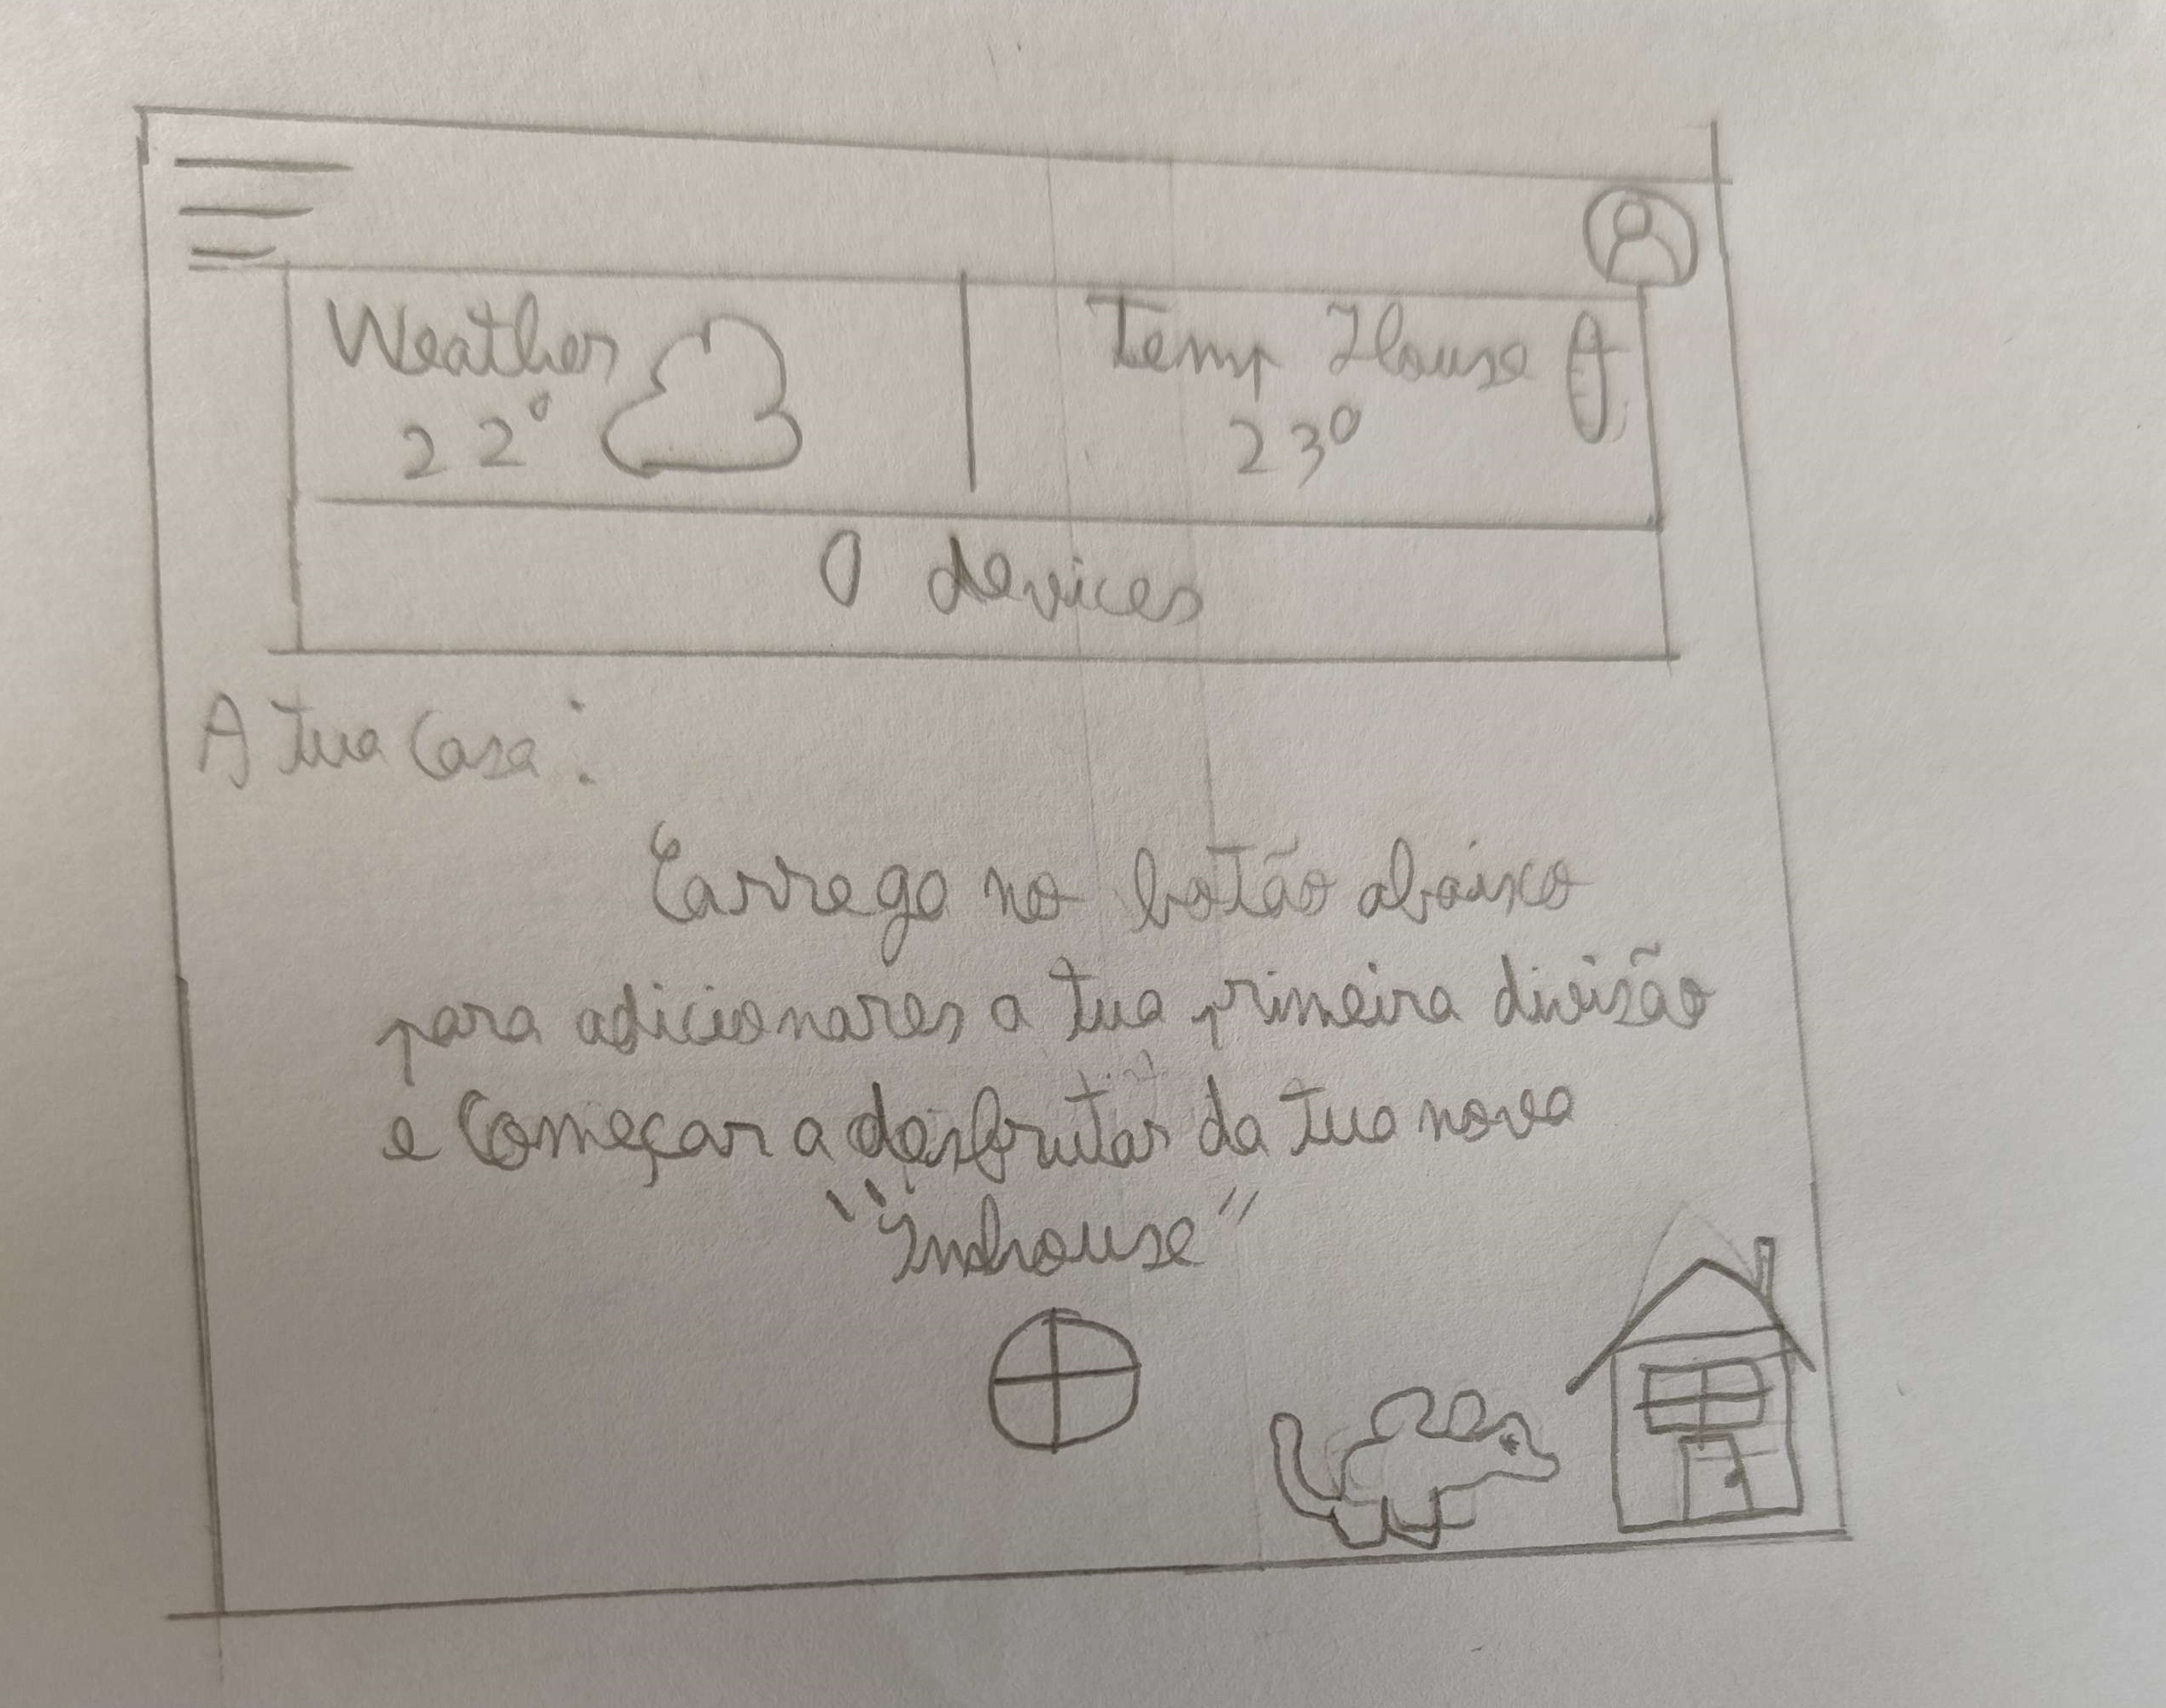 Weather
22°
Temp House
23°
0 devices
A tua Casa:
Carrega no botão abaixo
para adicionares a tua primeira divisão
e Começar a desfrutar da tua nova
"Inhouse"